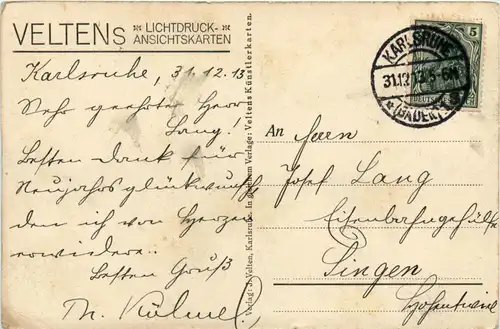 VELTENS * LICHTDRUCK- *
ANSICHTSKARTEN
Karlsruhe, 31.12.13
Sehr geehrter Herr
Lang!
Besten Dank für
Neujahrsglückwunsch
den ich von Herzen
erwidere.
Besten Gruß
Th.
Verlag: J. Velten, Karlsruhe. In gleichem Verlage: Veltens Künstlerkarten.
KARLSRUHE
31.12.13. 5-6N
*(BADEN)
5
An Herrn
Josef Lang
Eisenbahngehülfe
Singen
Hohentwiel